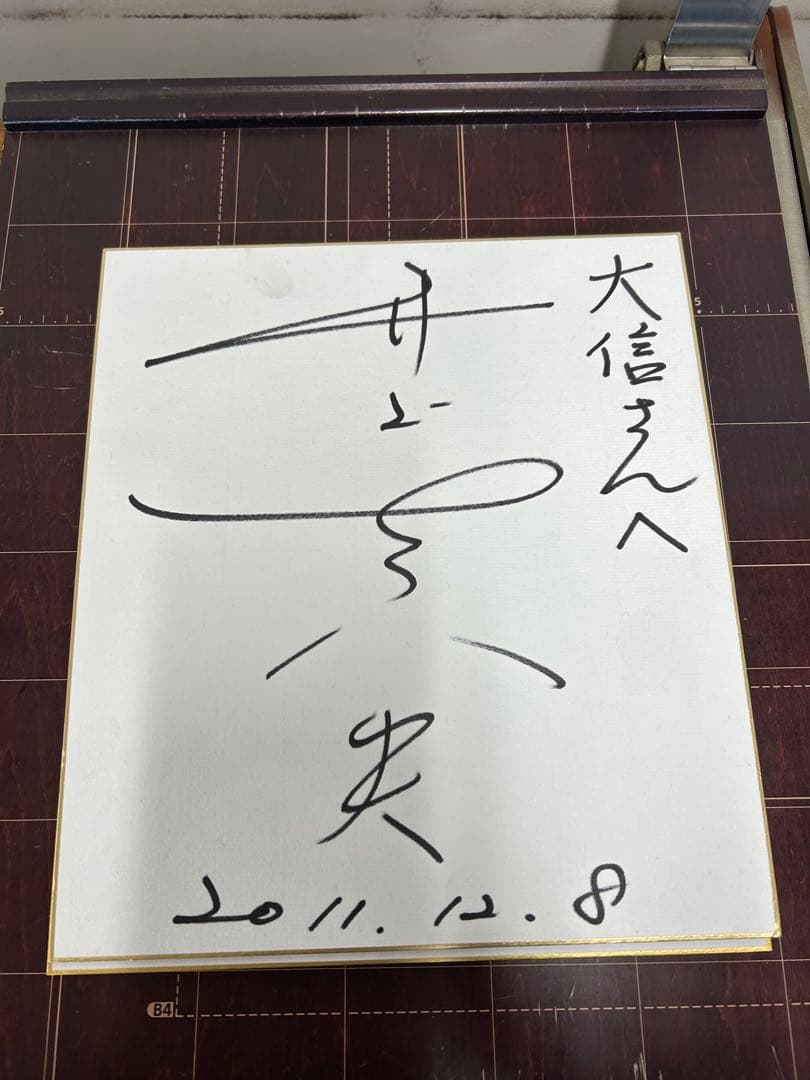 大信さんへ
井上真央
2011.12.8
B4
5
5